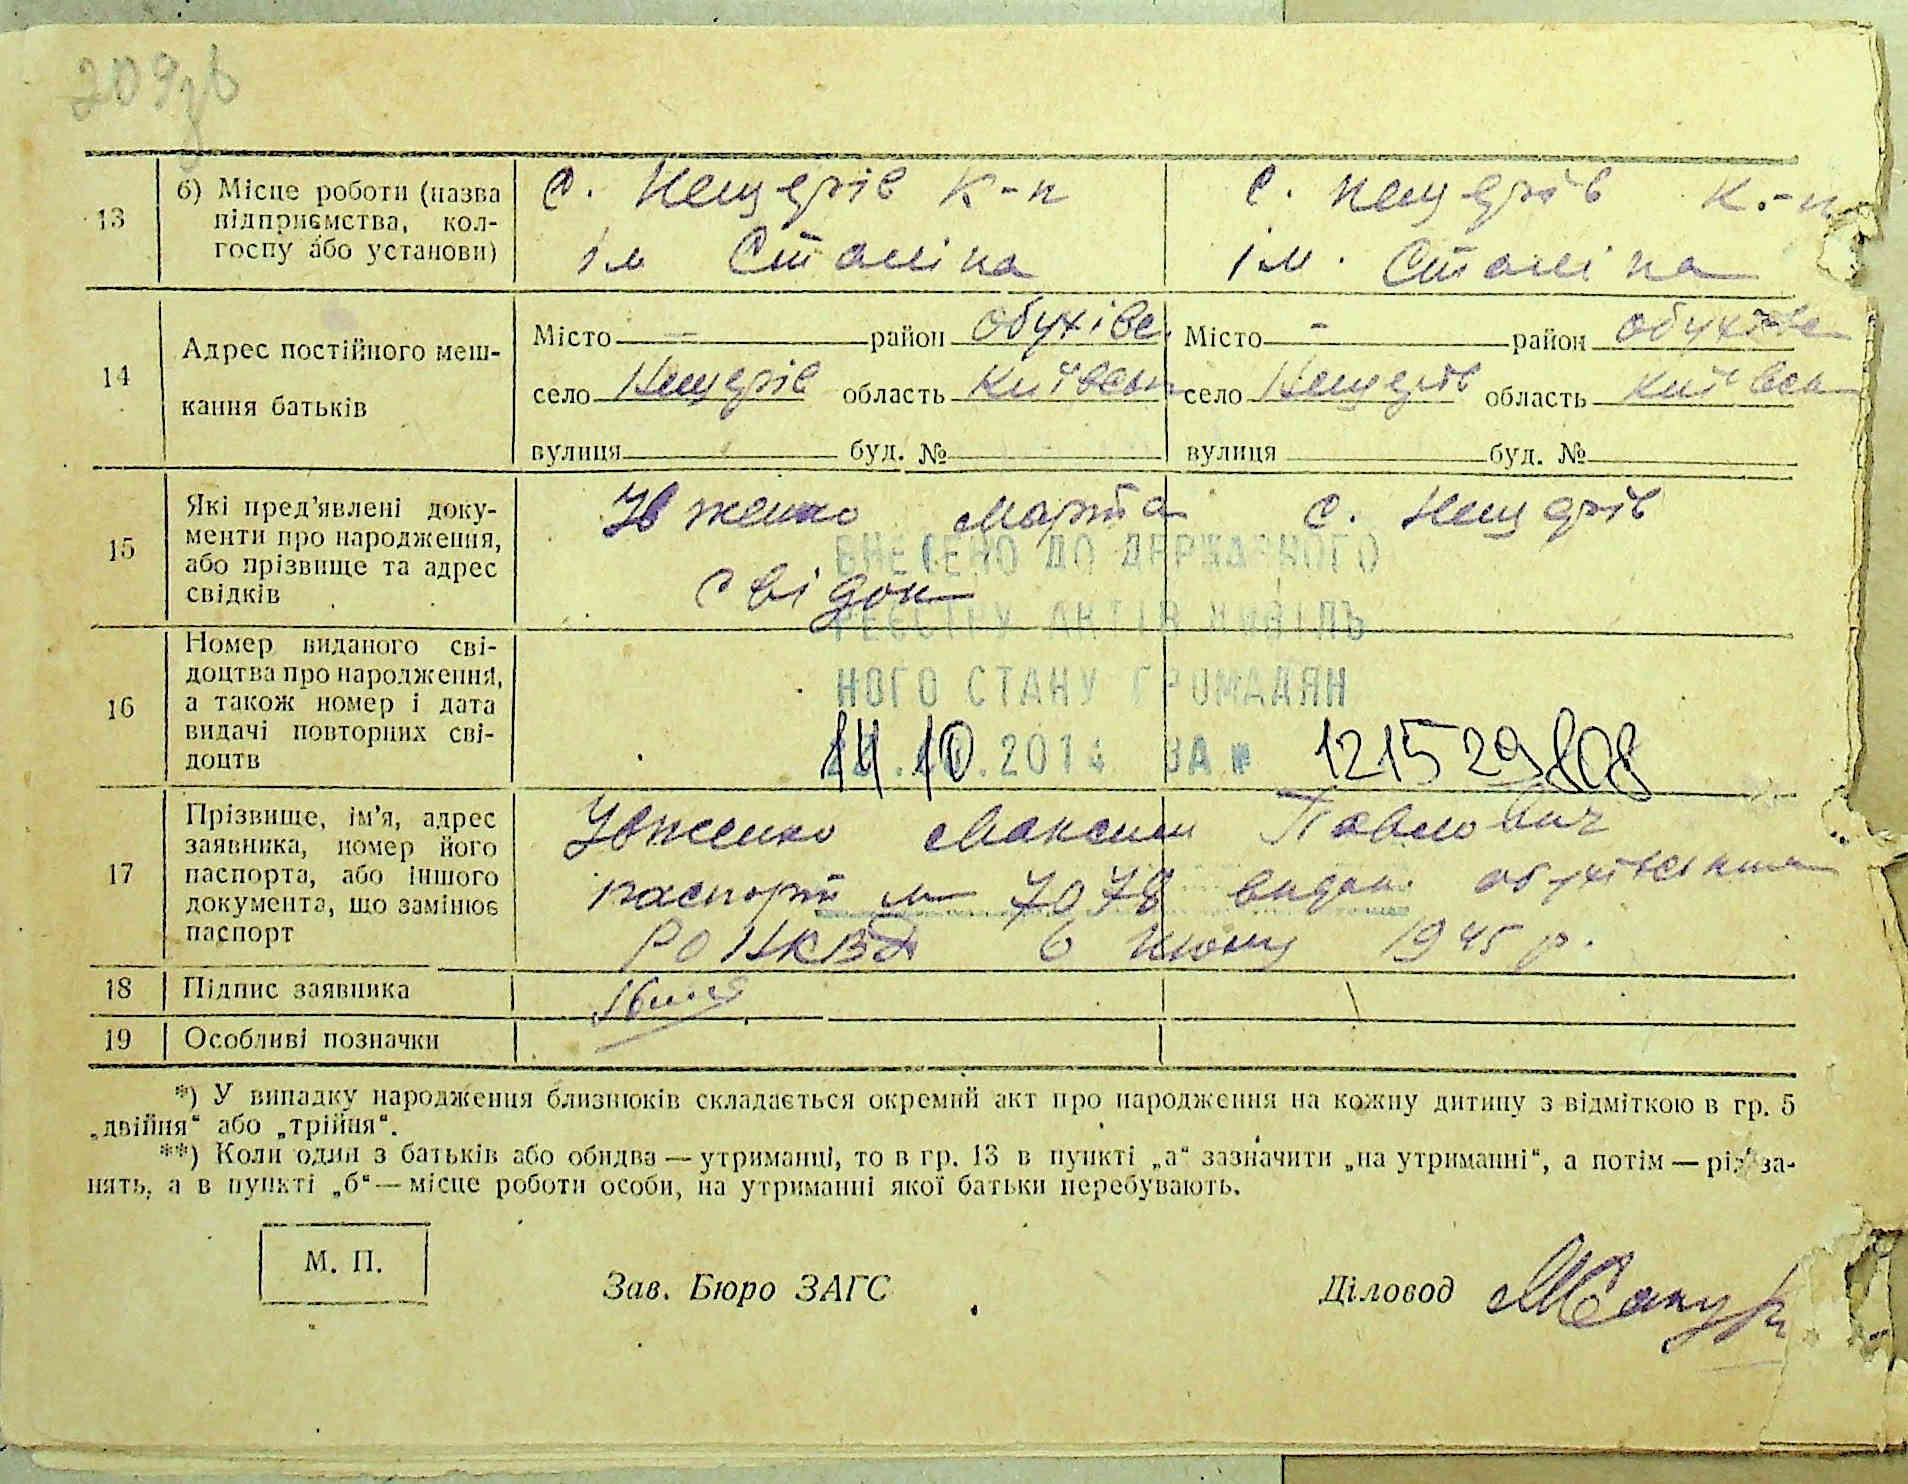 209зв
13 б) Місце роботи (назва підприємства, колгоспу або установи)
с. Нещерів к-п
ім Сталіна
с. Нещерів к.-п
ім. Сталіна
14 Адрес постійного мешкання батьків
Місто — район Обухівс.
село Нещерів область Київськ
вулиця буд. №
Місто - район Обухівс
село Нещерів область Київськ
вулиця буд. №
15 Які пред'явлені документи про народження, або прізвище та адрес свідків
Ювженко Марта с. Нещерів
свідок
ВНЕСЕНО ДО ДЕРЖАВНОГО
РЕЄСТРУ АКТІВ ЦИВІЛЬ
НОГО СТАНУ ГРОМАДЯН
16 Номер виданого свідоцтва про народження, а також номер і дата видачі повторних свідоцтв
14.10.2014 ЗА № 121529808
17 Прізвище, ім'я, адрес заявника, номер його паспорта, або іншого документа, що замінює паспорт
Ювженко Максим Павлович
паспорт № 7078 видан Обухівським
РО НКВД 6 1945 р.
18 Підпис заявника
19 Особливі позначки
*) У випадку народження близнюків складається окремий акт про народження на кожну дитину з відміткою в гр. 5
„двійня“ або „трійня“.
**) Коли один з батьків або обидва — утриманці, то в гр. 13 в пункті „а“ зазначити „на утриманні“, а потім — рід за-
нять, а в пункті „б“ — місце роботи особи, на утриманні якої батьки перебувають.
М. П.
Зав. Бюро ЗАГС
Діловод